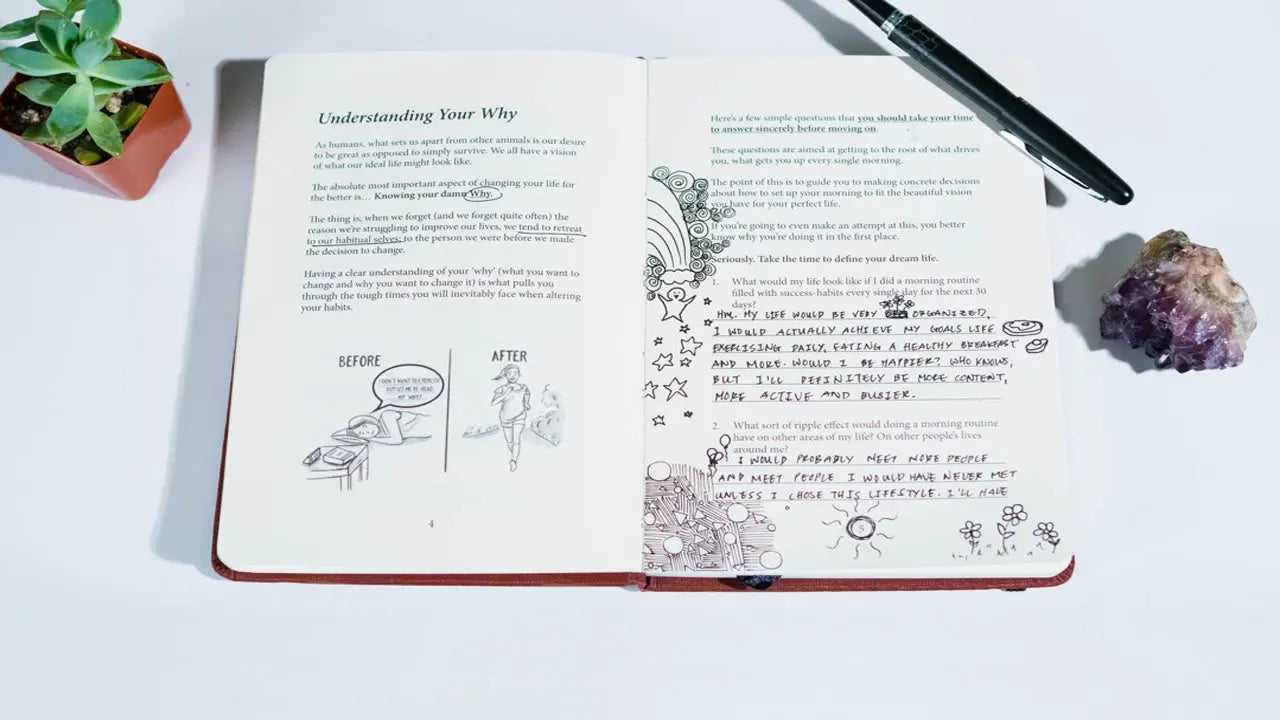 Understanding Your Why
As humans, what sets us apart from other animals is our desire
to be great as opposed to simply survive. We all have a vision
of what our ideal life might look like.
The absolute most important aspect of changing your life for
the better is... Knowing your damn Why.
The thing is, when we forget (and we forget quite often) the
reason we're struggling to improve our lives, we tend to retreat
to our habitual selves; to the person we were before we made
the decision to change.
Having a clear understanding of your 'why' (what you want to
change and why you want to change it) is what pulls you
through the tough times you will inevitably face when altering
your habits.
BEFORE
I DON'T WANT TO EXERCISE
BUT LET ME RE-READ
MY WHY?
AFTER
4
Here's a few simple questions that you should take your time
to answer sincerely before moving on.
These questions are aimed at getting to the root of what drives
you, what gets you up every single morning.
The point of this is to guide you to making concrete decisions
about how to set up your morning to fit the beautiful vision
you have for your perfect life.
If you're going to even make an attempt at this, you better
know why you're doing it in the first place.
Seriously. Take the time to define your dream life.
1. What would my life look like if I did a morning routine
filled with success-habits every single day for the next 30
days?
HM. MY LIFE WOULD BE VERY ORGANIZED,
I WOULD ACTUALLY ACHIEVE MY GOALS LIFE
EXERCISING DAILY, EATING A HEALTHY BREAKFAST
AND MORE. WOULD I BE HAPPIER? WHO KNOWS,
BUT I'LL DEFINITELY BE MORE CONTENT,
MORE ACTIVE AND BUSIER.
2. What sort of ripple effect would doing a morning routine
have on other areas of my life? On other people's lives
around me?
I WOULD PROBABLY MEET MORE PEOPLE
AND MEET PEOPLE I WOULD HAVE NEVER MET
UNLESS I CHOSE THIS LIFESTYLE. I'LL HAVE
5